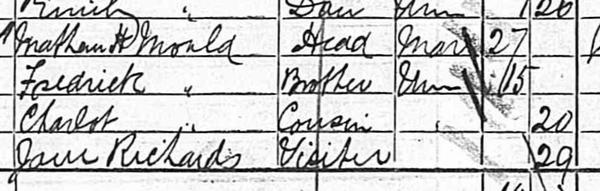 " Dau Unm 26
Nathan H Mould Head Mar 27
Fredrick " Brother Unm 15
Charlot " Cousin " 20
Jane Richards Visiter 29